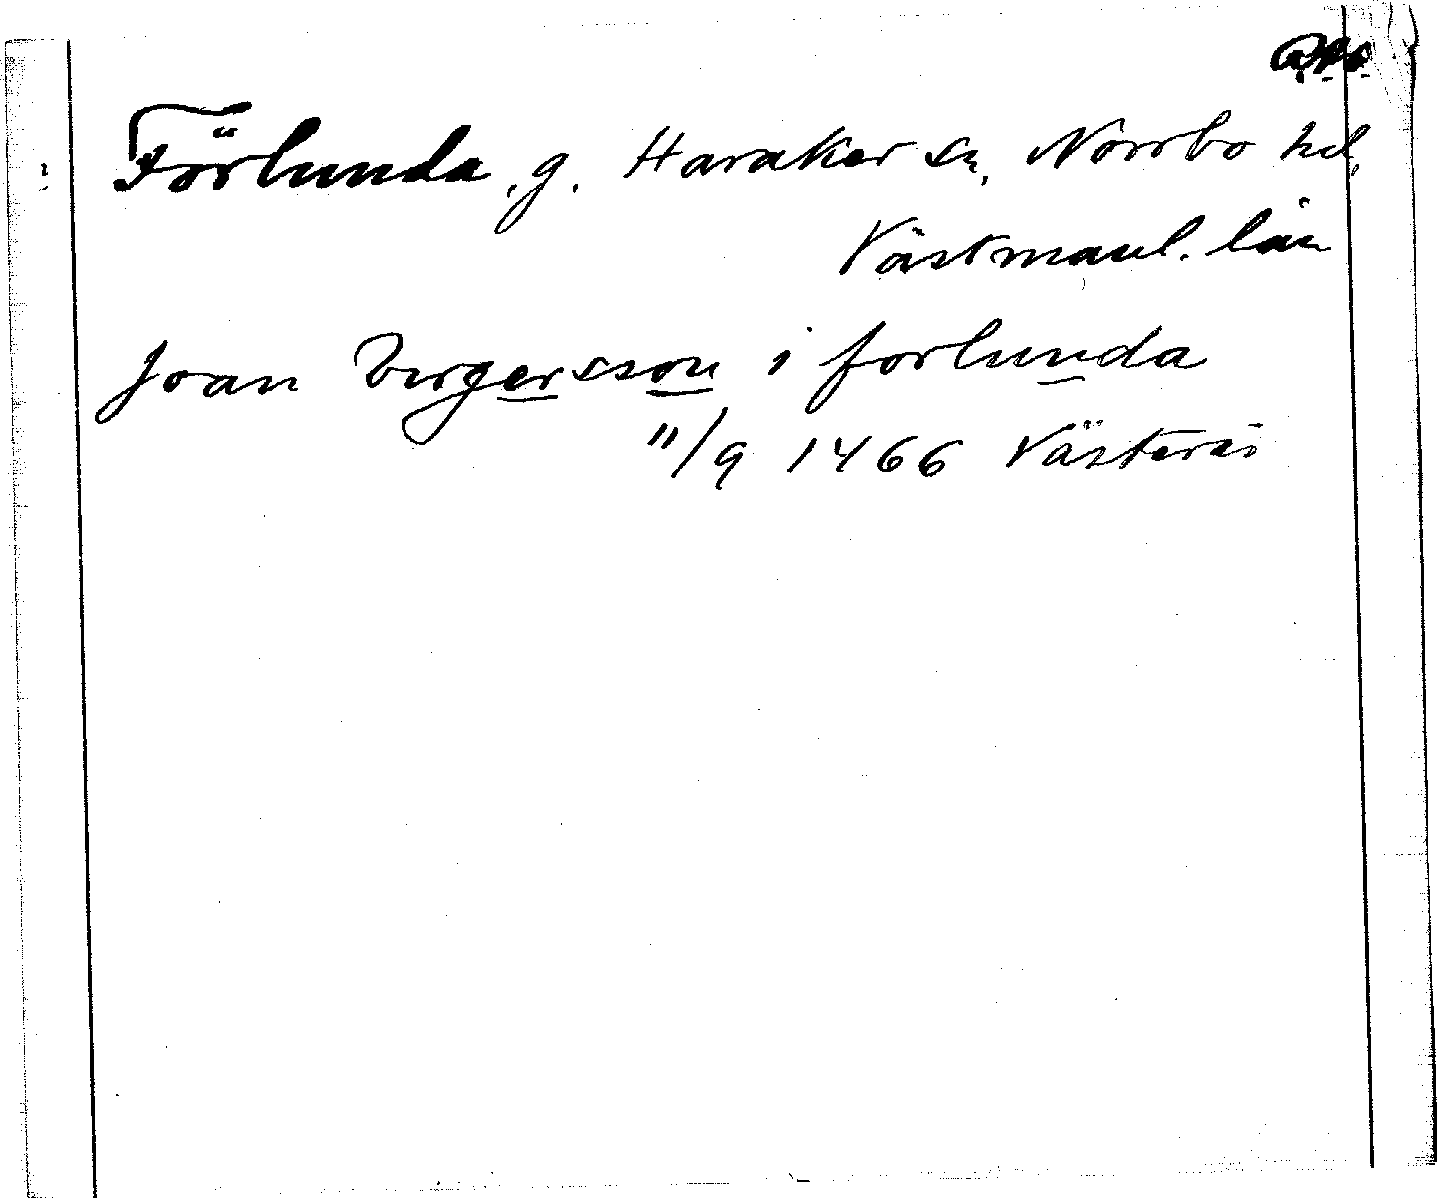 Förlunda, g. Haraker sn, Norrbo hd,
Västmanl. län
Joan Birgersson i forlunda
11/9 1466 Västerås